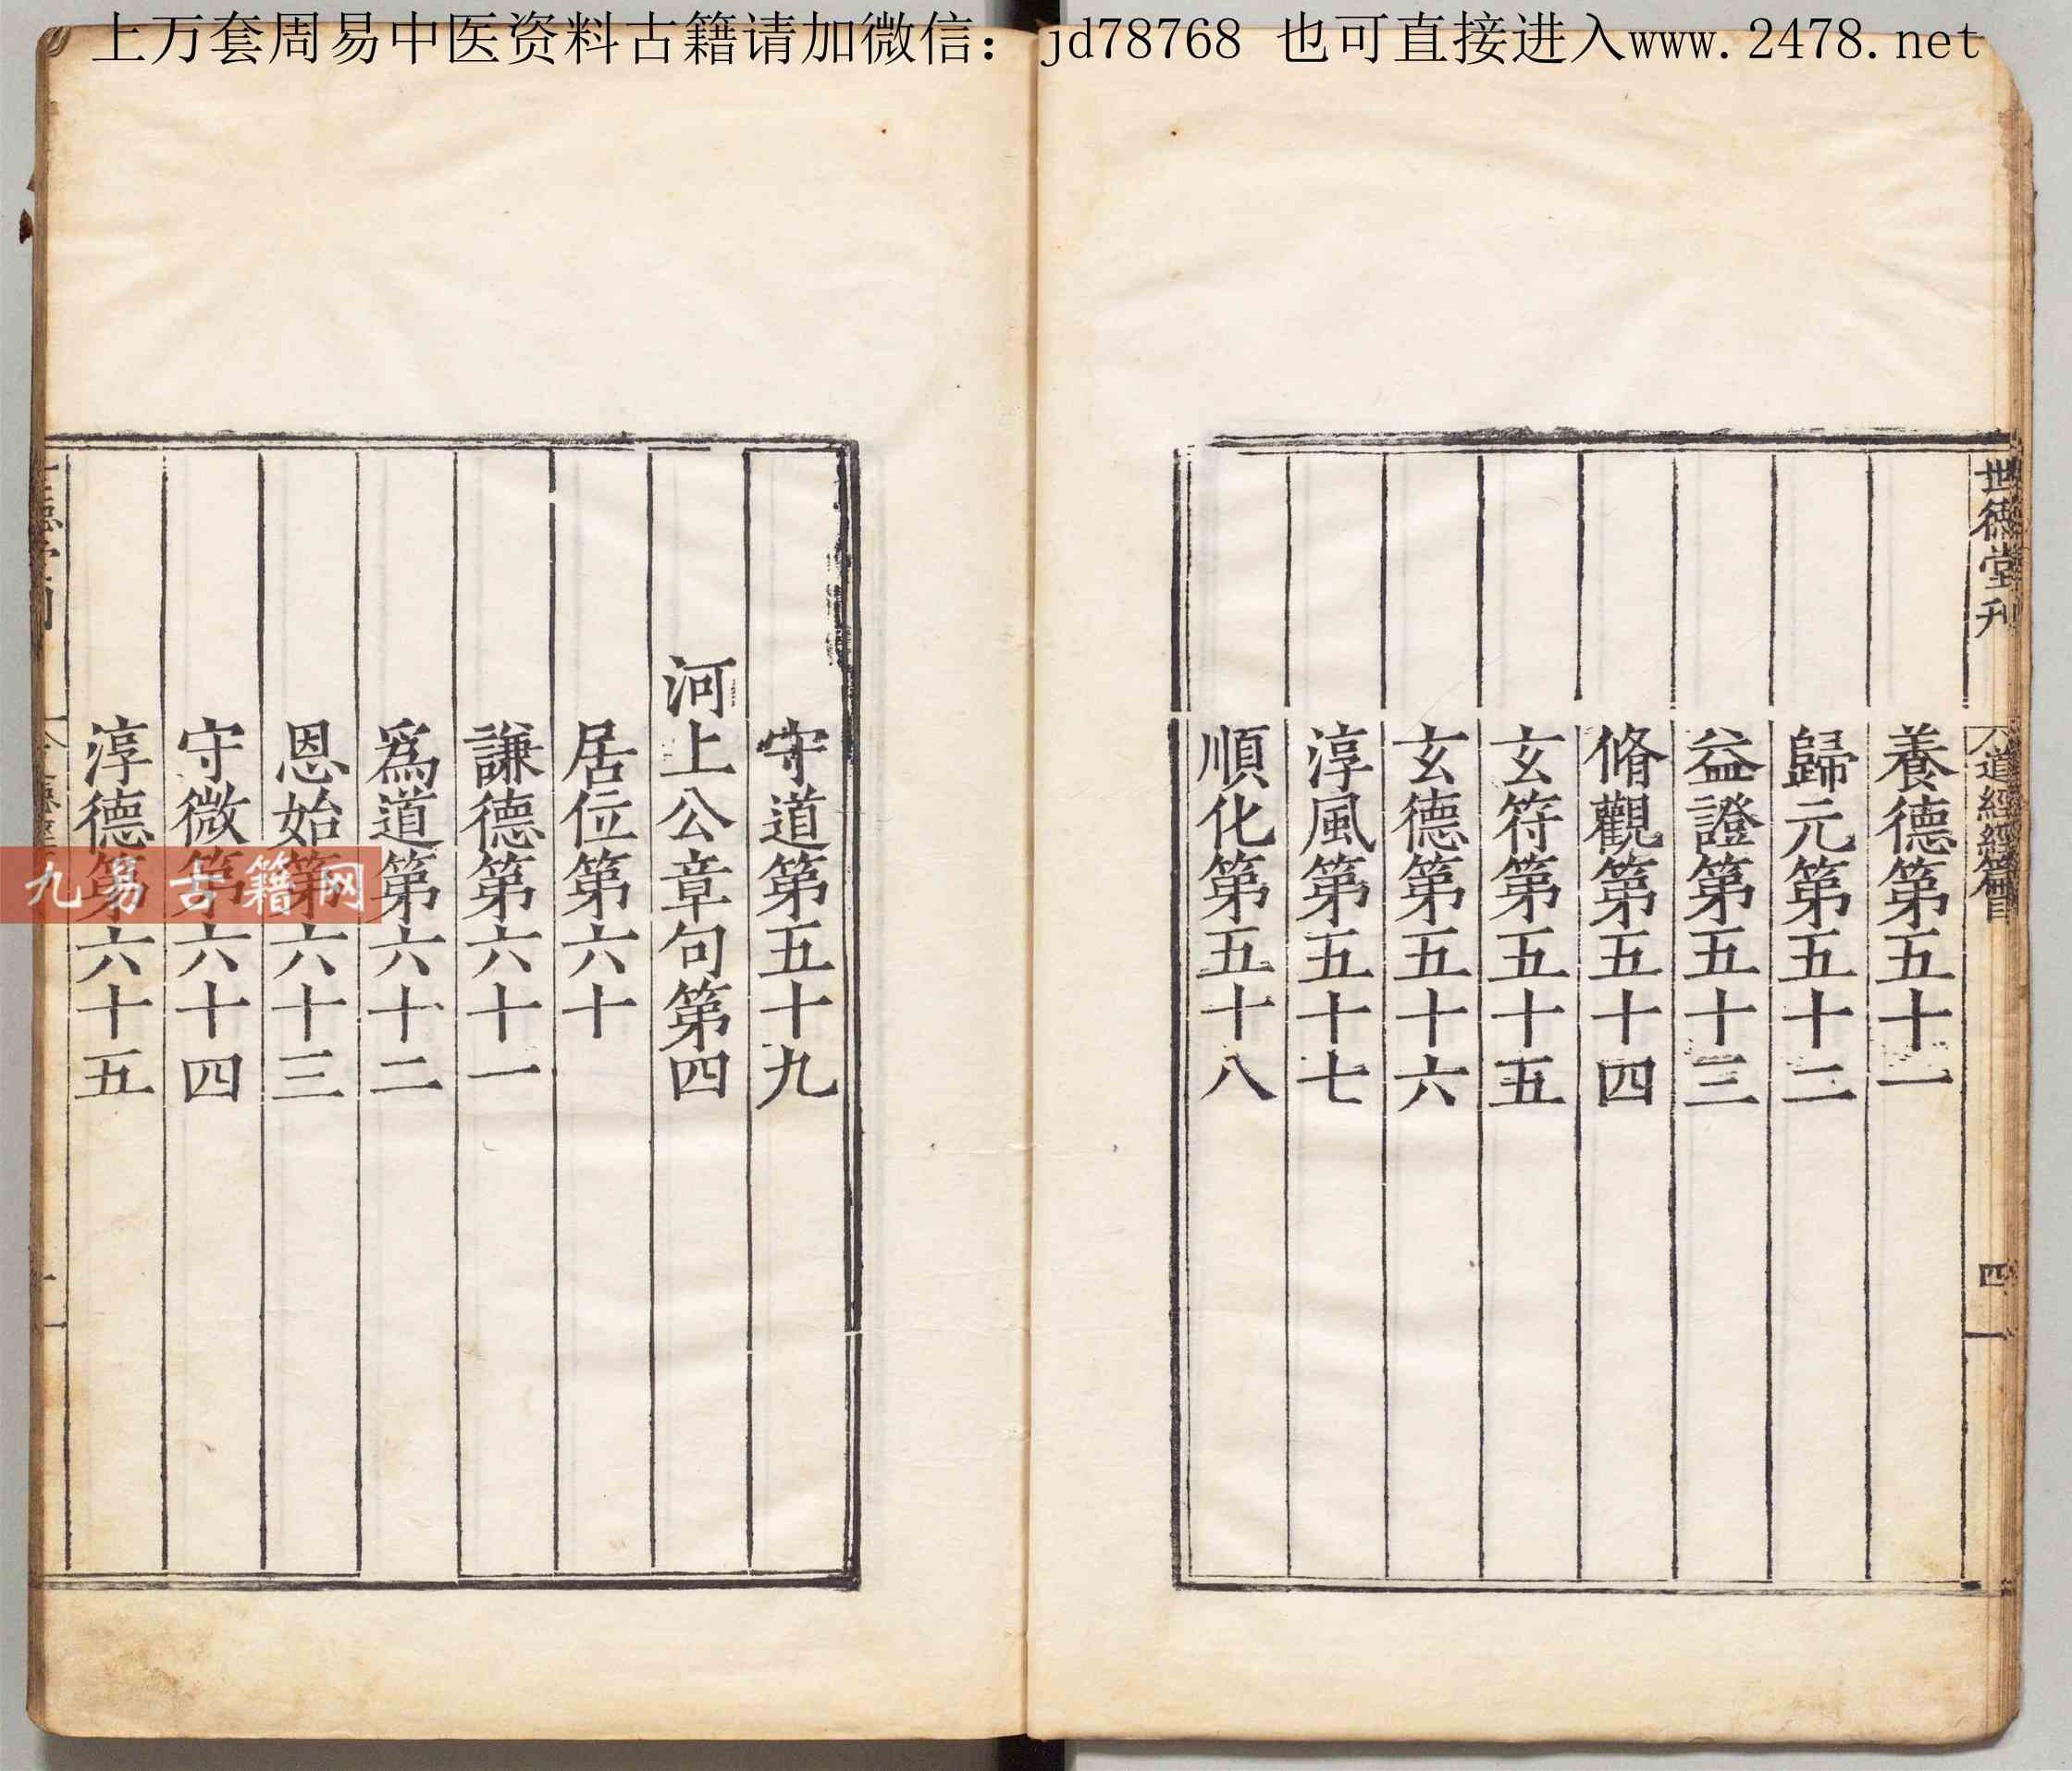 上万套周易中医资料古籍请加微信：jd78768 也可直接进入www.2478.net
世德堂刊
道經經篇目
四
養德第五十一
歸元第五十二
益證第五十三
脩觀第五十四
玄符第五十五
玄德第五十六
淳風第五十七
順化第五十八
守道第五十九
河上公章句第四
居位第六十
謙德第六十一
爲道第六十二
恩始第六十三
守微第六十四
淳德第六十五
九易古籍网